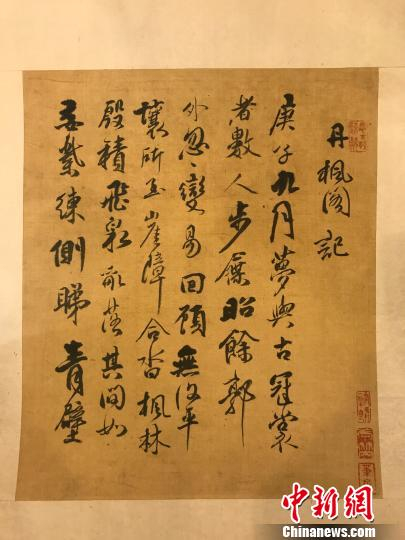 丹楓阁記
庚子九月夢與古冠裳
者數人步屧昭餘郭
外忽〻變易回顧無復平
壤所至崖障合沓楓林
殷積飛泉落其間如
縈練側睇青壁
中新网
Chinanews.com